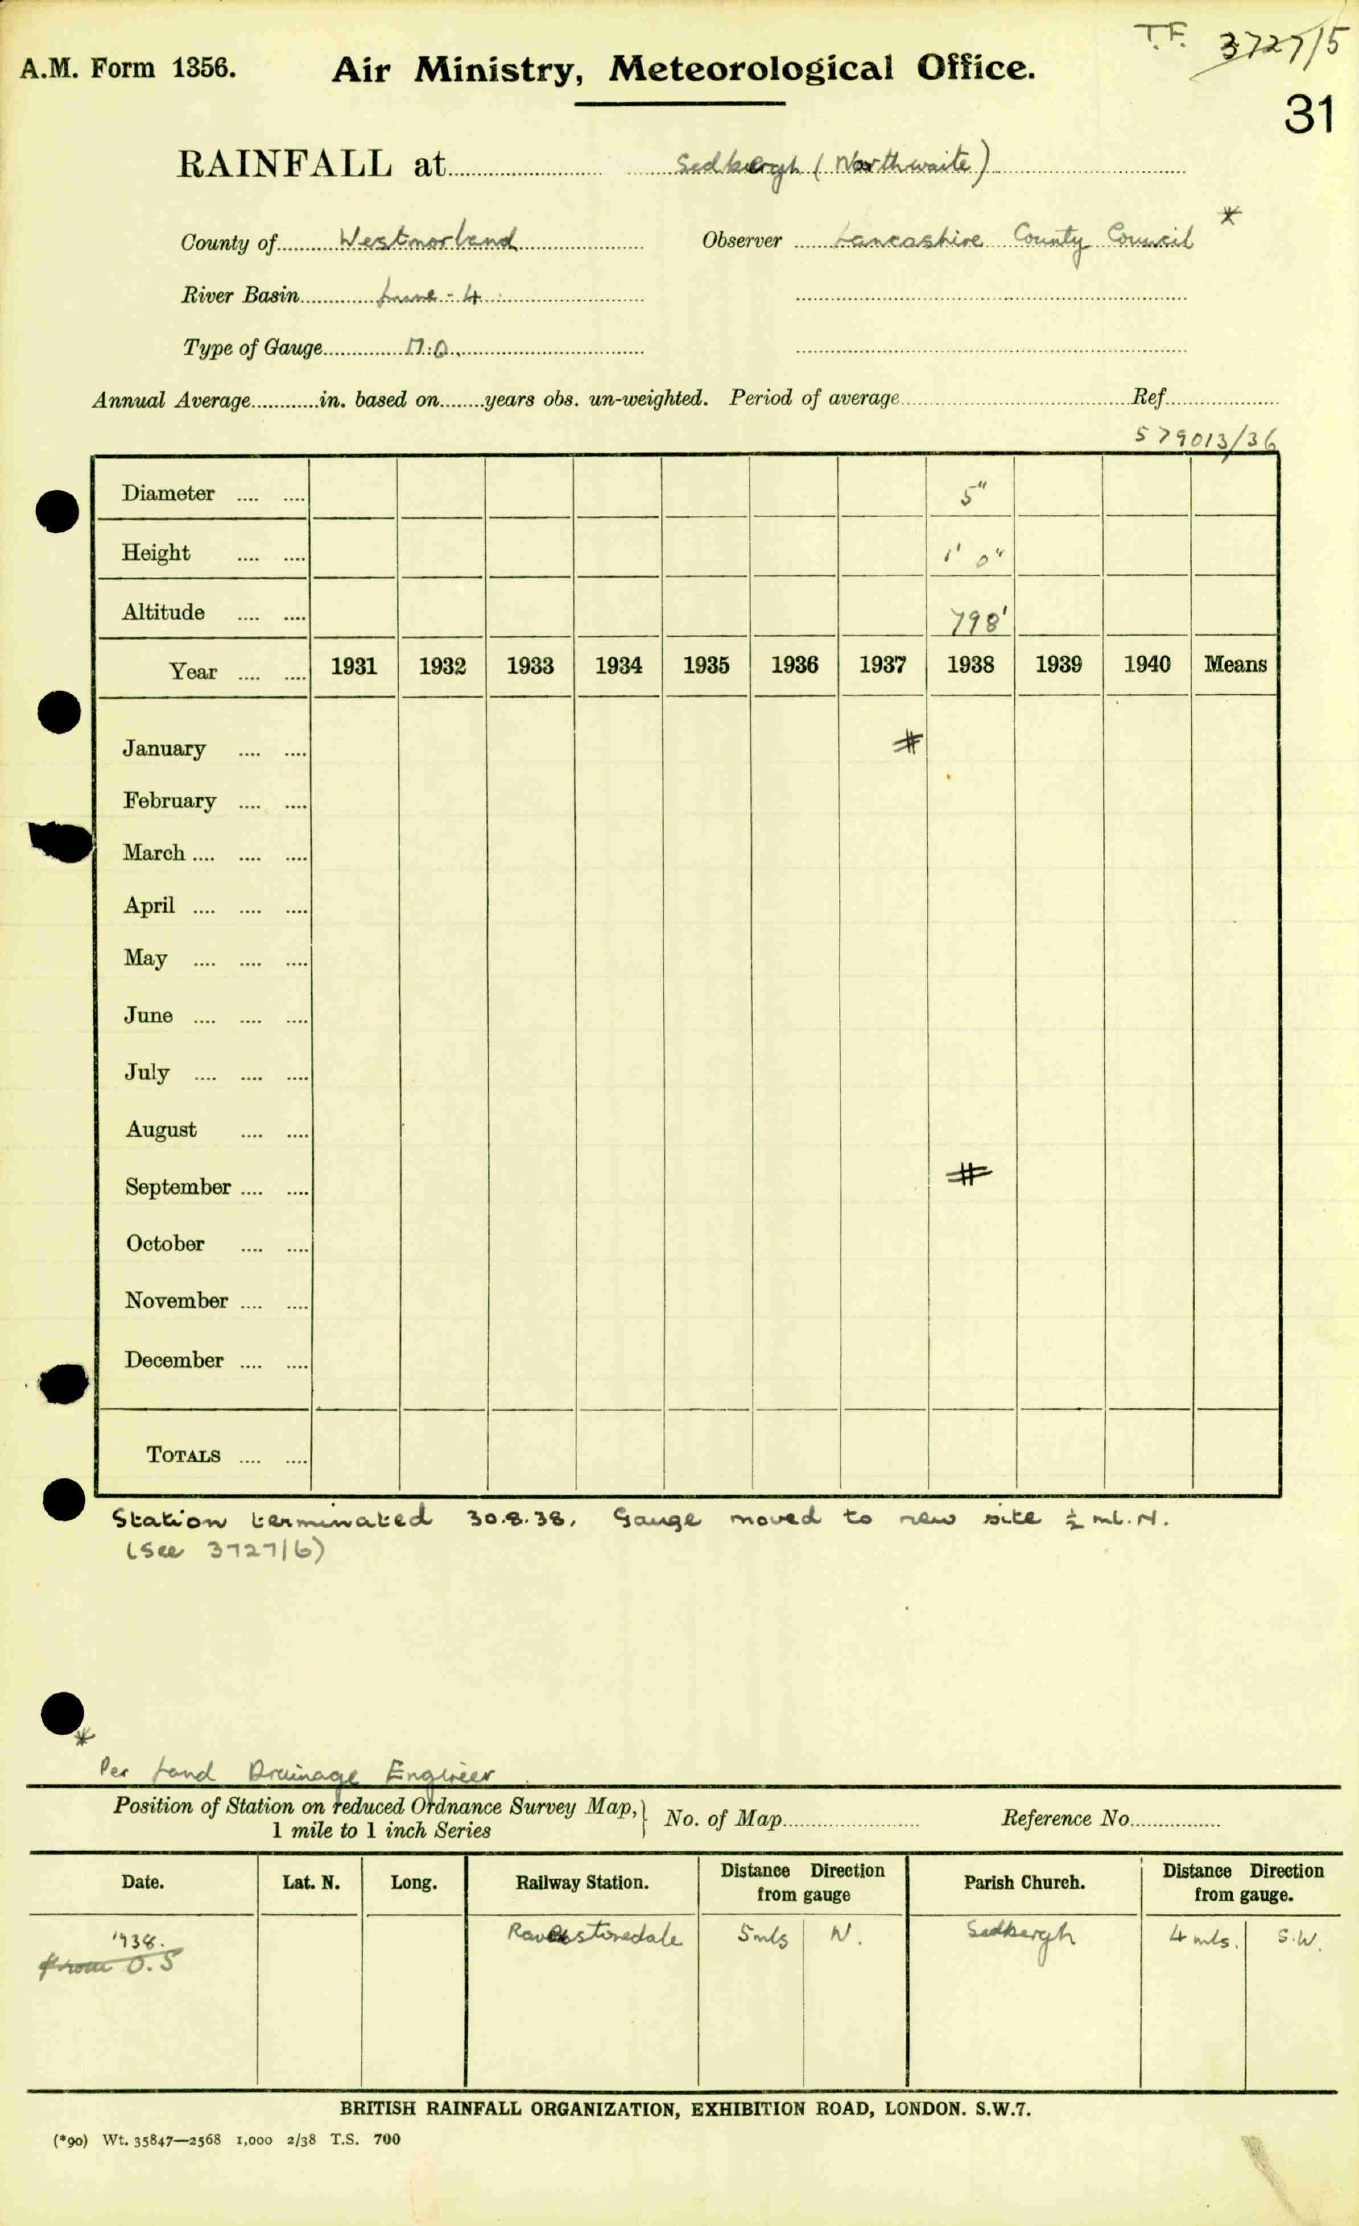 T.F. 3727/5
A.M. Form 1356. Air Ministry, Meteorological Office.
31
RAINFALL at Sedbergh (Northwaite)
County of Westmorland Observer Lancashire County Council *
River Basin Lune - 4
Type of Gauge M.O.
Annual Average in. based on years obs. un-weighted. Period of average Ref
579013/36
Diameter .... .... 5"
Height .... .... 1' 0"
Altitude .... .... 798'
Year .... .... 1931 1932 1933 1934 1935 1936 1937 1938 1939 1940 Means
January .... .... #
February .... ....
March .... .... ....
April .... .... ....
May .... .... ....
June .... .... ....
July .... .... ....
August .... ....
September .... .... #
October .... ....
November .... ....
December .... ....
TOTALS .... ....
Station terminated 30.8.38. Gauge moved to new site ½ ml. N.
(See 3727/6)
*
Per Land Drainage Engineer
Position of Station on reduced Ordnance Survey Map,} No. of Map Reference No.
1 mile to 1 inch Series
Date. Lat. N. Long. Railway Station. Distance Direction from gauge Parish Church. Distance Direction from gauge.
1938. Ravenstonedale 5 mls N. Sedbergh 4 mls. S.W.
from O.S
BRITISH RAINFALL ORGANIZATION, EXHIBITION ROAD, LONDON. S.W.7.
(*90) Wt. 35847—2568 1,000 2/38 T.S. 700